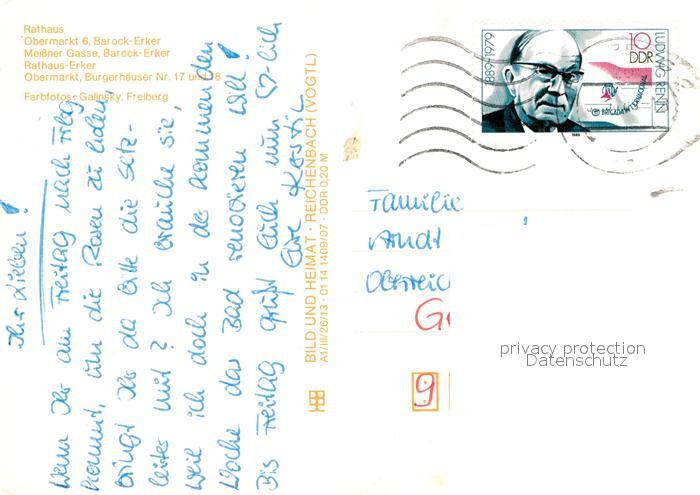 Rathaus
Obermarkt 6, Barock-Erker
Meißner Gasse, Barock-Erker
Rathaus-Erker
Obermarkt, Bürgerhäuser Nr. 17 und 18
Farbfotos: Galinsky, Freiberg
Ihr Lieben!
Wenn Ihr am Freitag nach Frbg
kommt, um die Rosen zu holen
bringt Ihr da bitte die Setz-
leiter mit? Ich brauche sie,
weil ich doch in der kommenden
Woche das Bad renovieren will!
Bis Freitag grüßt Euch ganz ♡-lich
Eure
BILD UND HEIMAT · REICHENBACH (VOGTL)
A1/III/26/13 · 01 14 1409/07 · DDR 0,20 M
1889-1979
10
DDR
LUDWIG RENN
BRIGADA INTERNACIONAL
1989
Familie
Arndt
G
9
privacy protection
Datenschutz